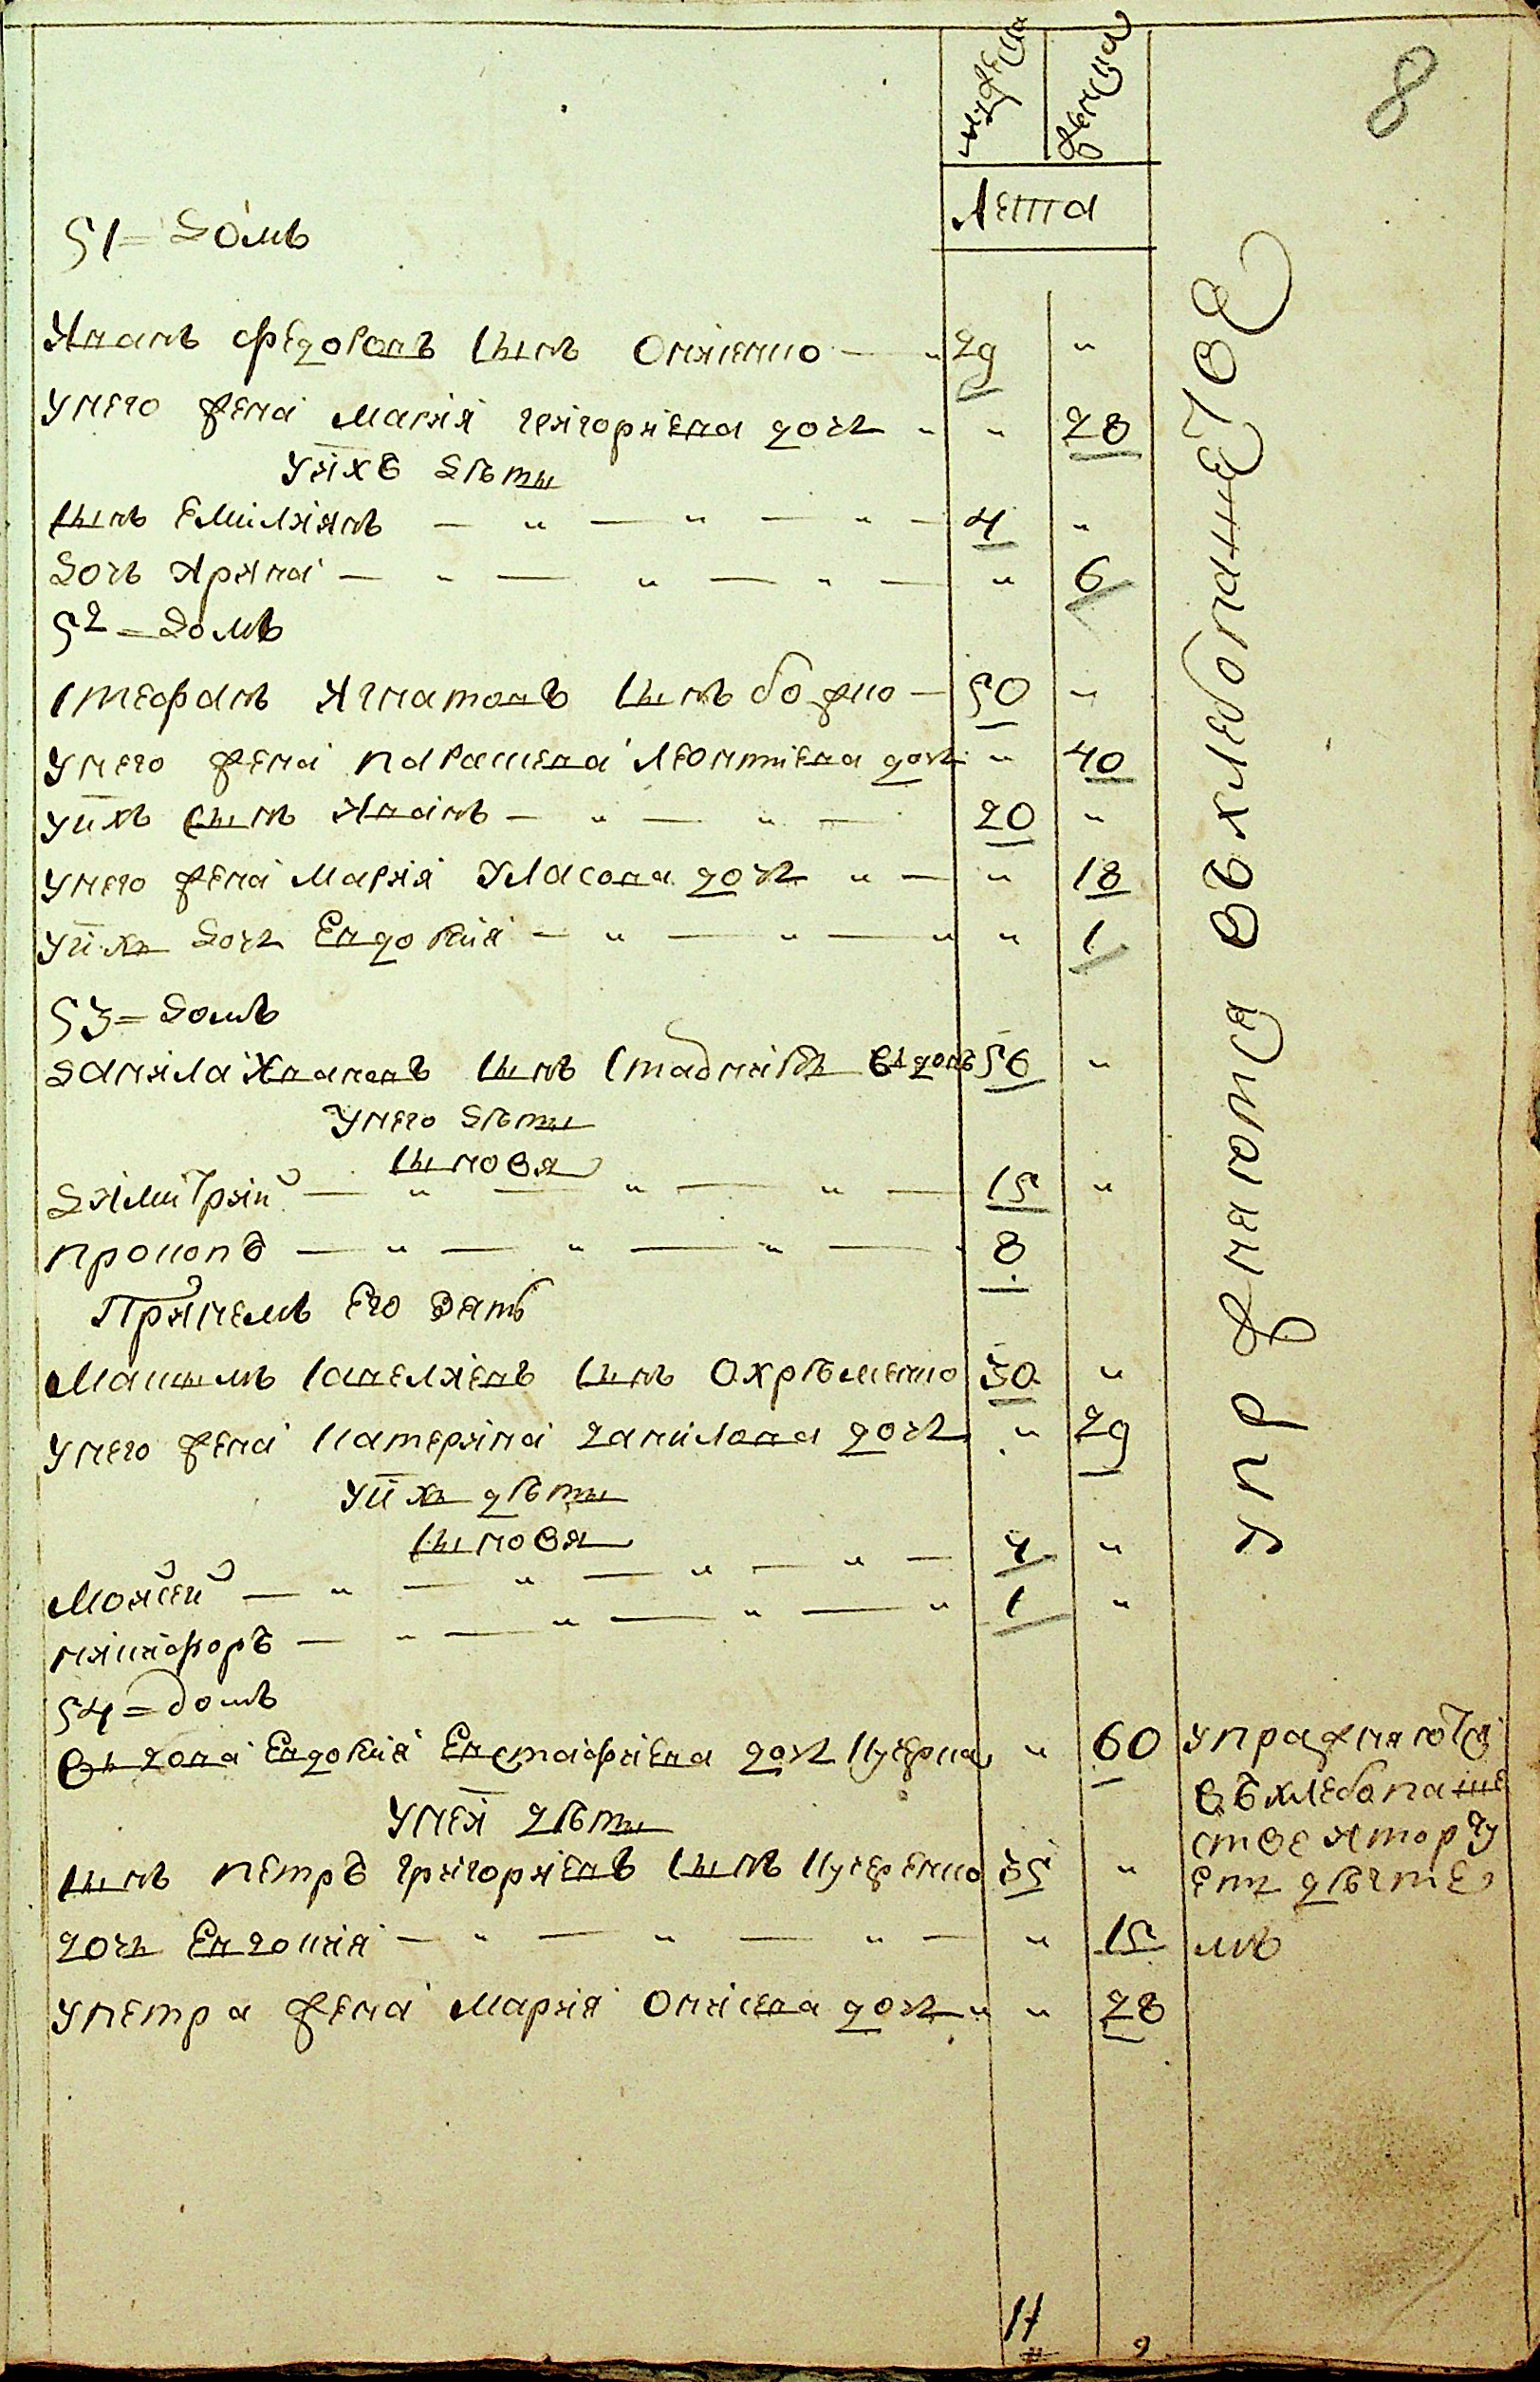 мужеска женска
8
лета
51 = домъ
Иванъ федоровъ сынъ Онисенко — " 29 "
унего жена мария григориева дочь " " 28
унихъ дѣти
сынъ Емилиянъ — " — " — " — 4 "
дочь Ирина — " — " — " — " 6
52 = домъ
стефанъ Игнатовъ сынъ божко — 50 "
унего жена параскева леонтиева дочь " 40
унихъ сынъ Иванъ — " — " — 20 "
унего жена мария Уласова дочь " — " 18
унихъ дочь Евдокия — " — " — " " 1
53 = домъ
данила Ивановъ сынъ стадникъ вдовъ 56 "
унего дѣти
сыновя
димитрий — " — " — " — 15 "
прокопъ — " — " — " — 8
Принемъ его зять
макъсымъ савелиевъ сынъ Охрѣменко 30 "
унего жена катерина данилова дочь " 29
унихъ дѣти
сыновя
мойсей — " — " — " — " — 4 "
никифоръ — " — " — " — " 1 "
54 = домъ
вдова Евдокия Евстафиева дочь кучерка " 60
унея дѣти
сынъ петръ григориевъ сынъ кучеренко 35 "
дочь Евдокия — " — " — " — " 15
упетра жена мария Онисева дочь " " 28
упражняются
въ хлебопаше
стве и торгу
етъ дѣгте
мъ
упражняются въ хлебопашествое
11 9